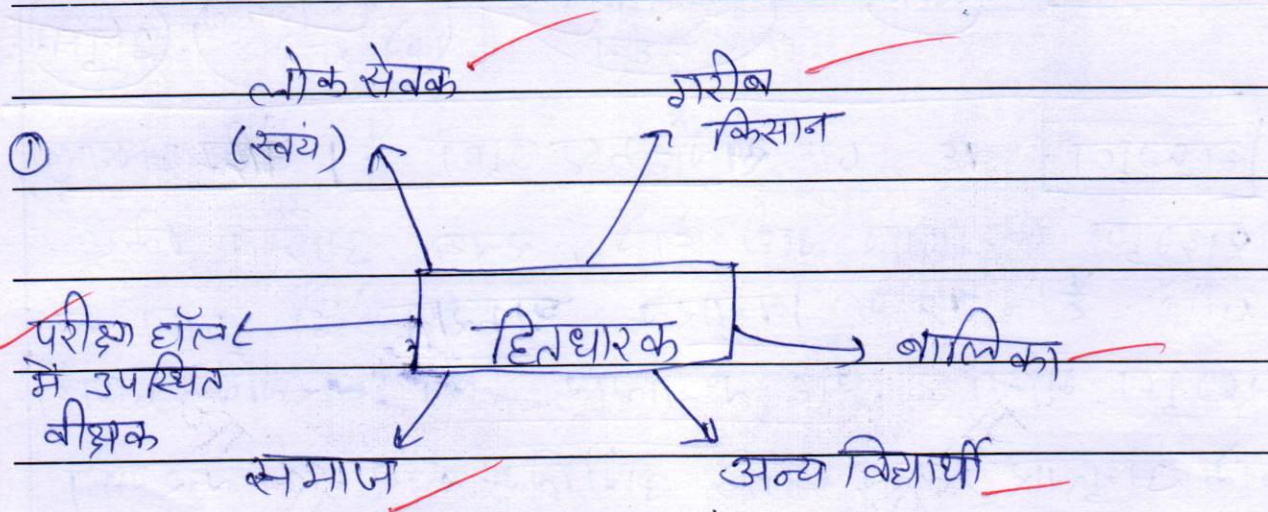 लोक सेवक
(स्वयं)
गरीब
किसान
①
हितधारक
परीक्षा हॉल
में उपस्थित
वीक्षक
बालिका
समाज
अन्य विद्यार्थी